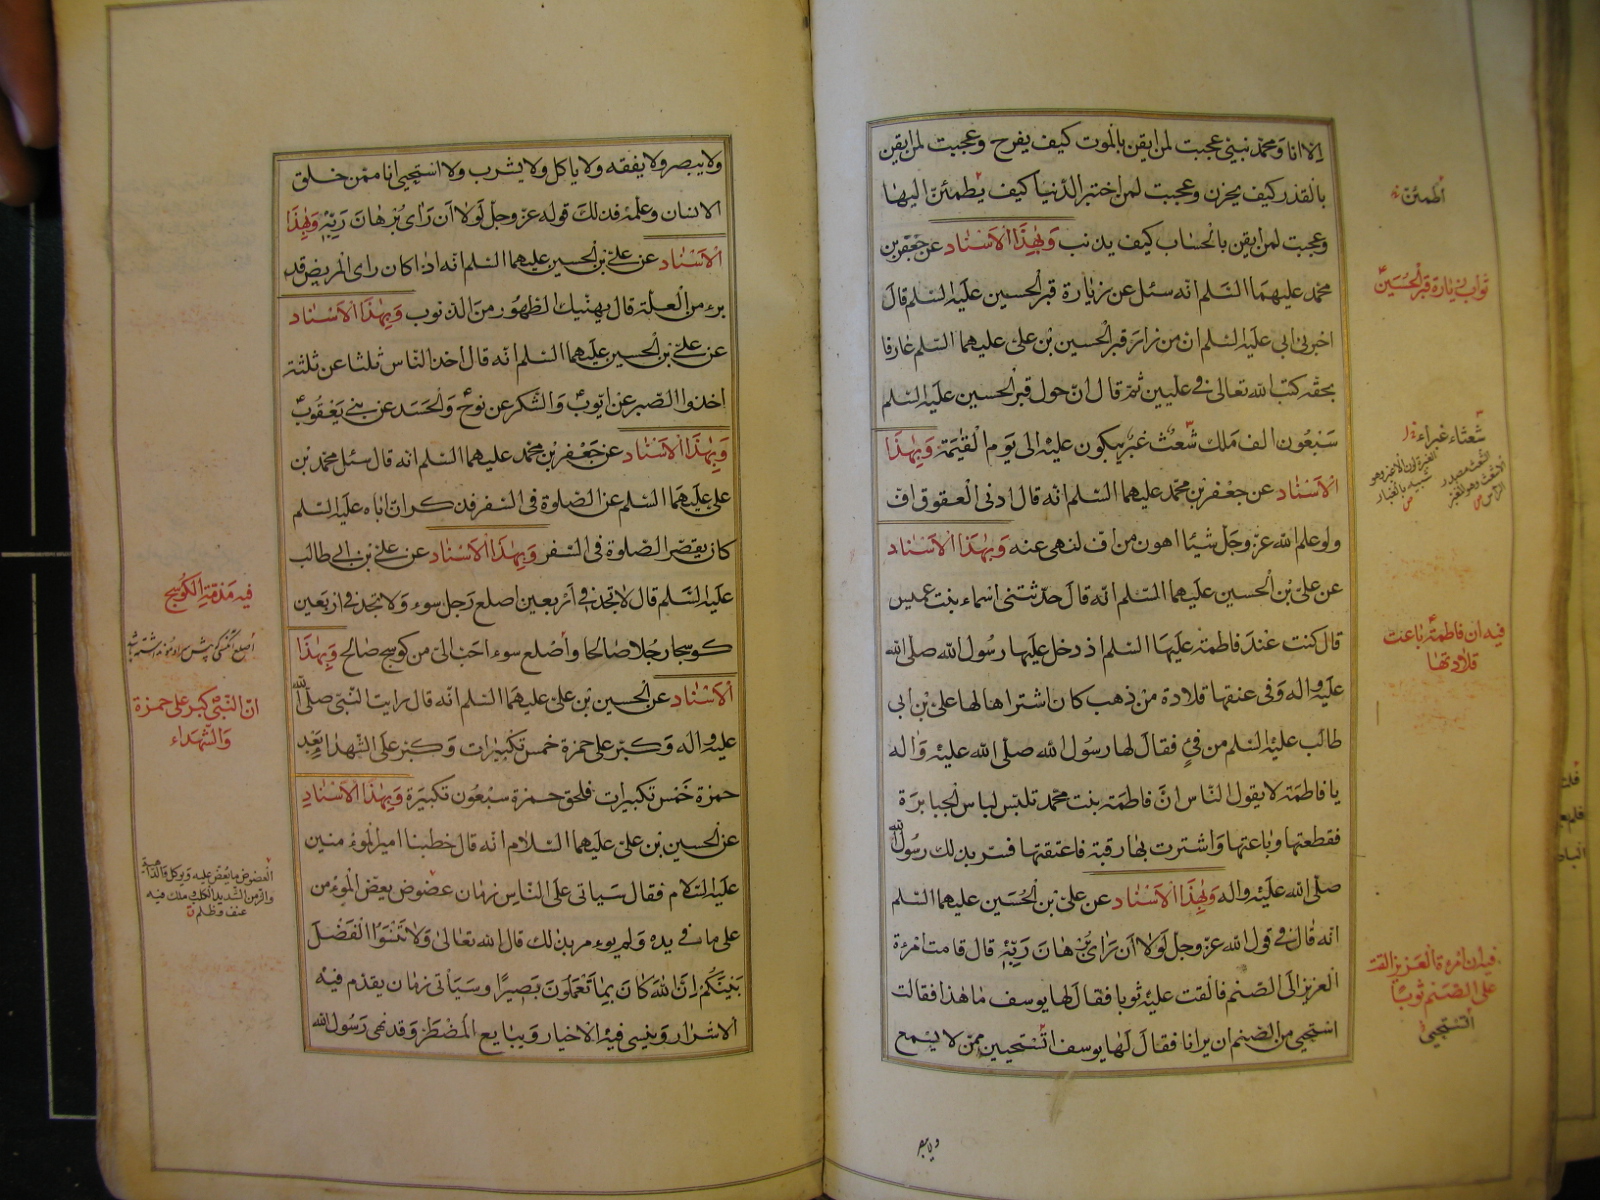 الا انا ومحمد نبيي عجبت لمن ايقن بالموت كيف يفرح وعجبت لمن ايقن
بالقدر كيف يحزن وعجبت لمن اختبر الدنيا كيف يطمئن اليها
وعجبت لمن ايقن بالحساب كيف يذنب وبهذا الاسناد عن جعفر بن
محمد عليهما السلم انه سئل عن زيارة قبر الحسين عليه السلم قال
اخبرني ابي عليه السلم ان من زار قبر الحسين بن علي عليهما السلم عارفا
بحقه كتب الله تعالى في عليين ثم قال ان حول قبر الحسين عليه السلم
سبعون الف ملك شعث غبر يبكون عليه الى يوم القيمة وبهذا
الاسناد عن جعفر بن محمد عليهما السلم انه قال ادنى العقوق اف
ولو علم الله عز وجل شيئا اهون من اف لنهى عنه وبهذا الاسناد
عن علي بن الحسين عليهما السلم انه قال حدثتني اسماء بنت عميس
قال كنت عند فاطمة عليها السلم اذ دخل عليها رسول الله صلى الله
عليه واله وفي عنقها قلادة من ذهب كان اشتراها لها علي بن ابي
طالب عليه السلم من فئ فقال لها رسول الله صلى الله عليه واله
يا فاطمة لا يقول الناس ان فاطمة بنت محمد تلبس لباس الجبابرة
فقطعتها وباعتها واشترت بها رقبة فاعتقتها فسر بذلك رسول الله
صلى الله عليه واله وبهذا الاسناد عن علي بن الحسين عليهما السلم
انه قال في قول الله عز وجل لولا ان راى برهان ربه قال قامت امرءة
العزيز الى الصنم فالقت عليه ثوبا فقال لها يوسف ما هذا فقالت
استحيي من الصنم ان يرانا فقال لها يوسف اتستحيين ممن لا يسمع
ولا يبصر
اطمئن
ثواب زيارة قبر الحسين
شعثاء غبراء
فيه ان فاطمة باعت
قلادتها
فيه ان امرءة العزيز القت
على الصنم ثوبا
اتستحيي
ولا يبصر ولا يفقه ولا ياكل ولا يشرب ولا استحيي انا ممن خلق
الانسان وعلمه فذلك قوله عز وجل لولا ان راى برهان ربه وبهذا
الاسناد عن علي بن الحسين عليهما السلم انه اذا كان راى المريض قد
برء من العلة قال يهنيك الطهور من الذنوب وبهذا الاسناد
عن علي بن الحسين عليهما السلم انه قال اخذ الناس ثلثا عن ثلثة
اخذوا الصبر عن ايوب والشكر عن نوح والحسد عن بني يعقوب
وبهذا الاسناد عن جعفر بن محمد عليهما السلم انه قال سئل محمد بن
علي عليهما السلم عن الصلوة في السفر فذكر ان اباه عليه السلم
كان يقصر الصلوة في السفر وبهذا الاسناد عن علي بن ابي طالب
عليه السلم قال لا تجد في اربعين اصلع رجل سوء ولا تجد في اربعين
كوسجا رجلا صالحا واصلع سوء احب الي من كوسج صالح وبهذا
الاسناد عن الحسين بن علي عليهما السلم انه قال رايت النبي صلى الله
عليه واله وكبر على حمزة خمس تكبيرات وكبر على الشهدا بعد
حمزة خمس تكبيرات فلحق حمزة سبعون تكبيرة وبهذا الاسناد
عن الحسين بن علي عليهما السلام انه قال خطبنا امير المؤمنين
عليه السلام فقال سياتي على الناس زمان عضوض يعض المؤمن
على ما في يده ولم يؤمر بذلك قال الله تعالى ولا تنسوا الفضل
بينكم ان الله كان بما تعملون بصيرا وسياتي زمان يقدم فيه
الاشرار وينسى فيه الاخيار ويبايع المضطر وقد نهى رسول الله
فيه مذمة الكوسج
ان النبي كبر على حمزة
والشهداء
العضوض ما يعض عليه ويوكل والداهية
والزمن الشديد الكلب وملك فيه
عنف وظلم ق